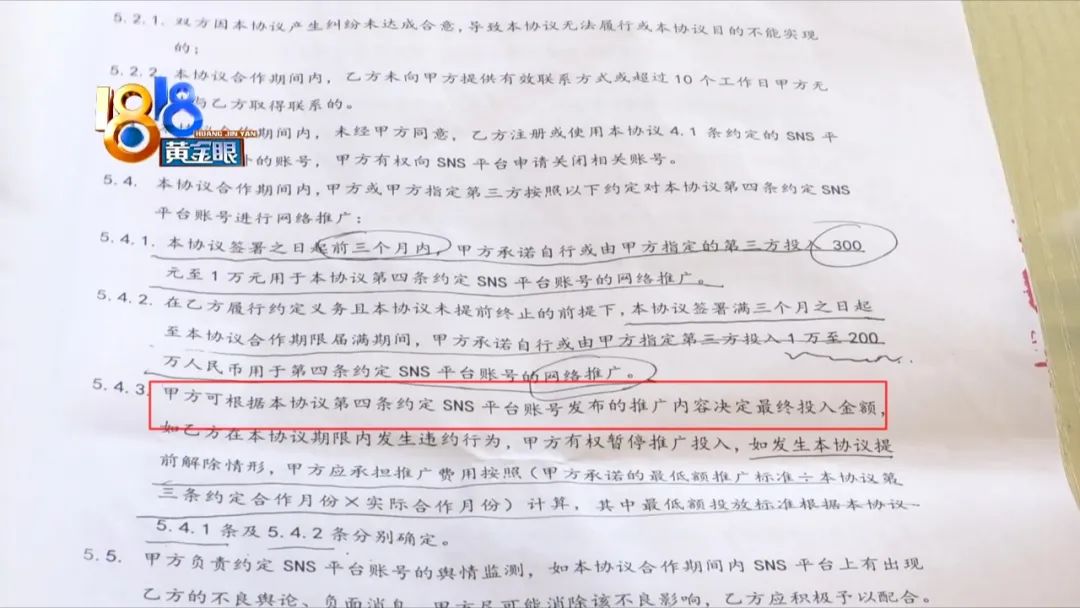 5.2.1. 双方因本协议产生纠纷未达成合意,导致本协议无法履行或本协议目的不能实现
的;
5.2.2. 本协议合作期间内,乙方未向甲方提供有效联系方式或超过 10 个工作日甲方无
与乙方取得联系的。
合作期间内,未经甲方同意,乙方注册或使用本协议 4.1 条约定的 SNS 平
外的账号,甲方有权向 SNS 平台申请关闭相关账号。
1818
HUANG JIN YAN
黄金眼
5.4. 本协议合作期间内,甲方或甲方指定第三方按照以下约定对本协议第四条约定 SNS
平台账号进行网络推广:
5.4.1. 本协议签署之日起前三个月内,甲方承诺自行或由甲方指定的第三方投入 300
元至 1 万元用于本协议第四条约定 SNS 平台账号的网络推广。
5.4.2. 在乙方履行约定义务且本协议未提前终止的前提下,本协议签署满三个月之日起
至本协议合作期限届满期间,甲方承诺自行或由甲方指定第三方投入 1 万至 200
万人民币用于第四条约定 SNS 平台账号的网络推广。
5.4.3. 甲方可根据本协议第四条约定 SNS 平台账号发布的推广内容决定最终投入金额,
如乙方在本协议期限内发生违约行为,甲方有权暂停推广投入,如发生本协议提
前解除情形,甲方应承担推广费用按照(甲方承诺的最低额推广标准÷本协议第
三条约定合作月份×实际合作月份)计算,其中最低额投放标准根据本协议
5.4.1 条及 5.4.2 条分别确定。
5.5. 甲方负责约定 SNS 平台账号的舆情监测,如本协议合作期间内 SNS 平台上有出现
乙方的不良舆论、负面消息,甲方尽可能消除该不良影响,乙方应积极予以配合。